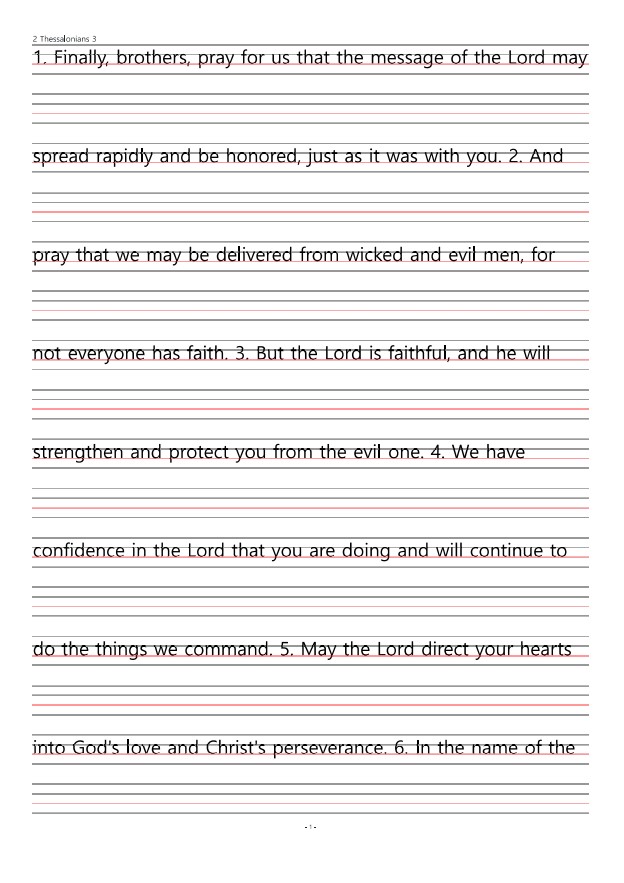 2 Thessalonians 3
1. Finally, brothers, pray for us that the message of the Lord may
spread rapidly and be honored, just as it was with you. 2. And
pray that we may be delivered from wicked and evil men, for
not everyone has faith. 3. But the Lord is faithful, and he will
strengthen and protect you from the evil one. 4. We have
confidence in the Lord that you are doing and will continue to
do the things we command. 5. May the Lord direct your hearts
into God's love and Christ's perseverance. 6. In the name of the
- 1 -